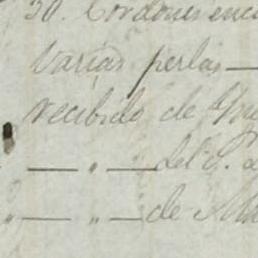 30. Cordones enc
varias perlas —
recibido de
— „ — del
„ — „ — de